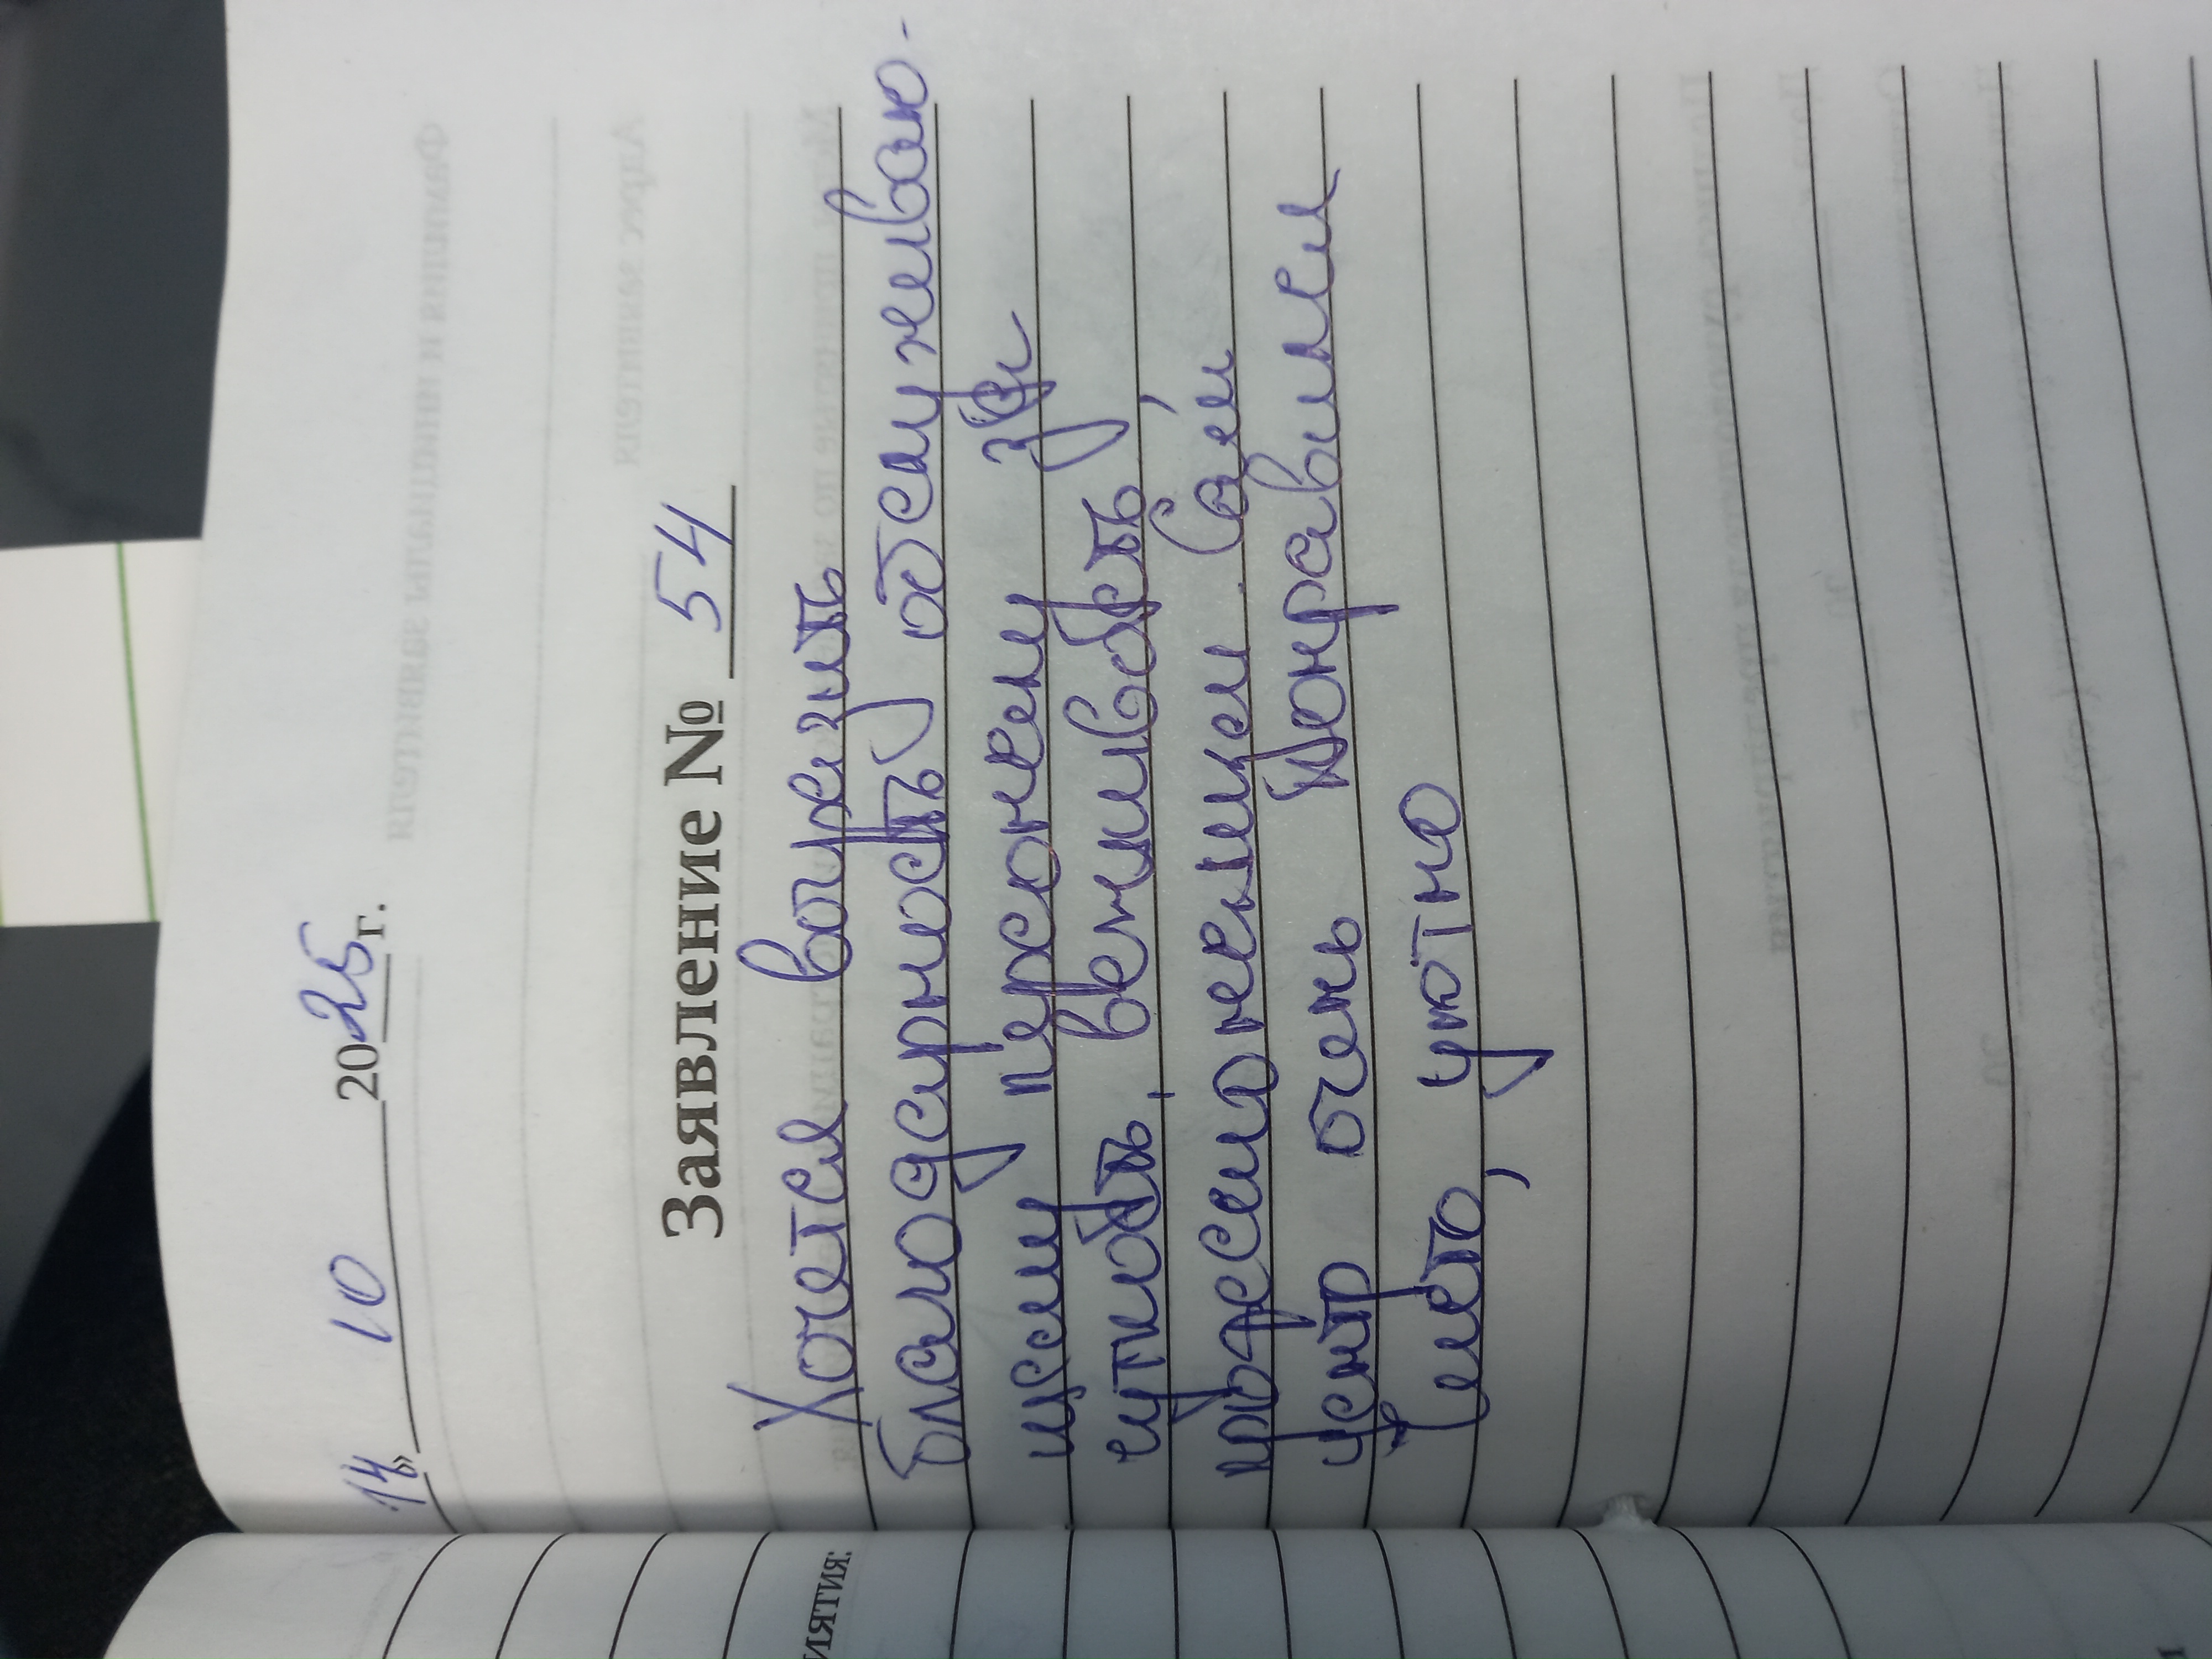 «14» 10 2025 г.
Заявление № 54
Хочется выразить
благодарность обслуживаю-
щему персоналу за
чуткость, вежливость,
профессионализм. Сам
центр очень понравился
Чисто, уютно